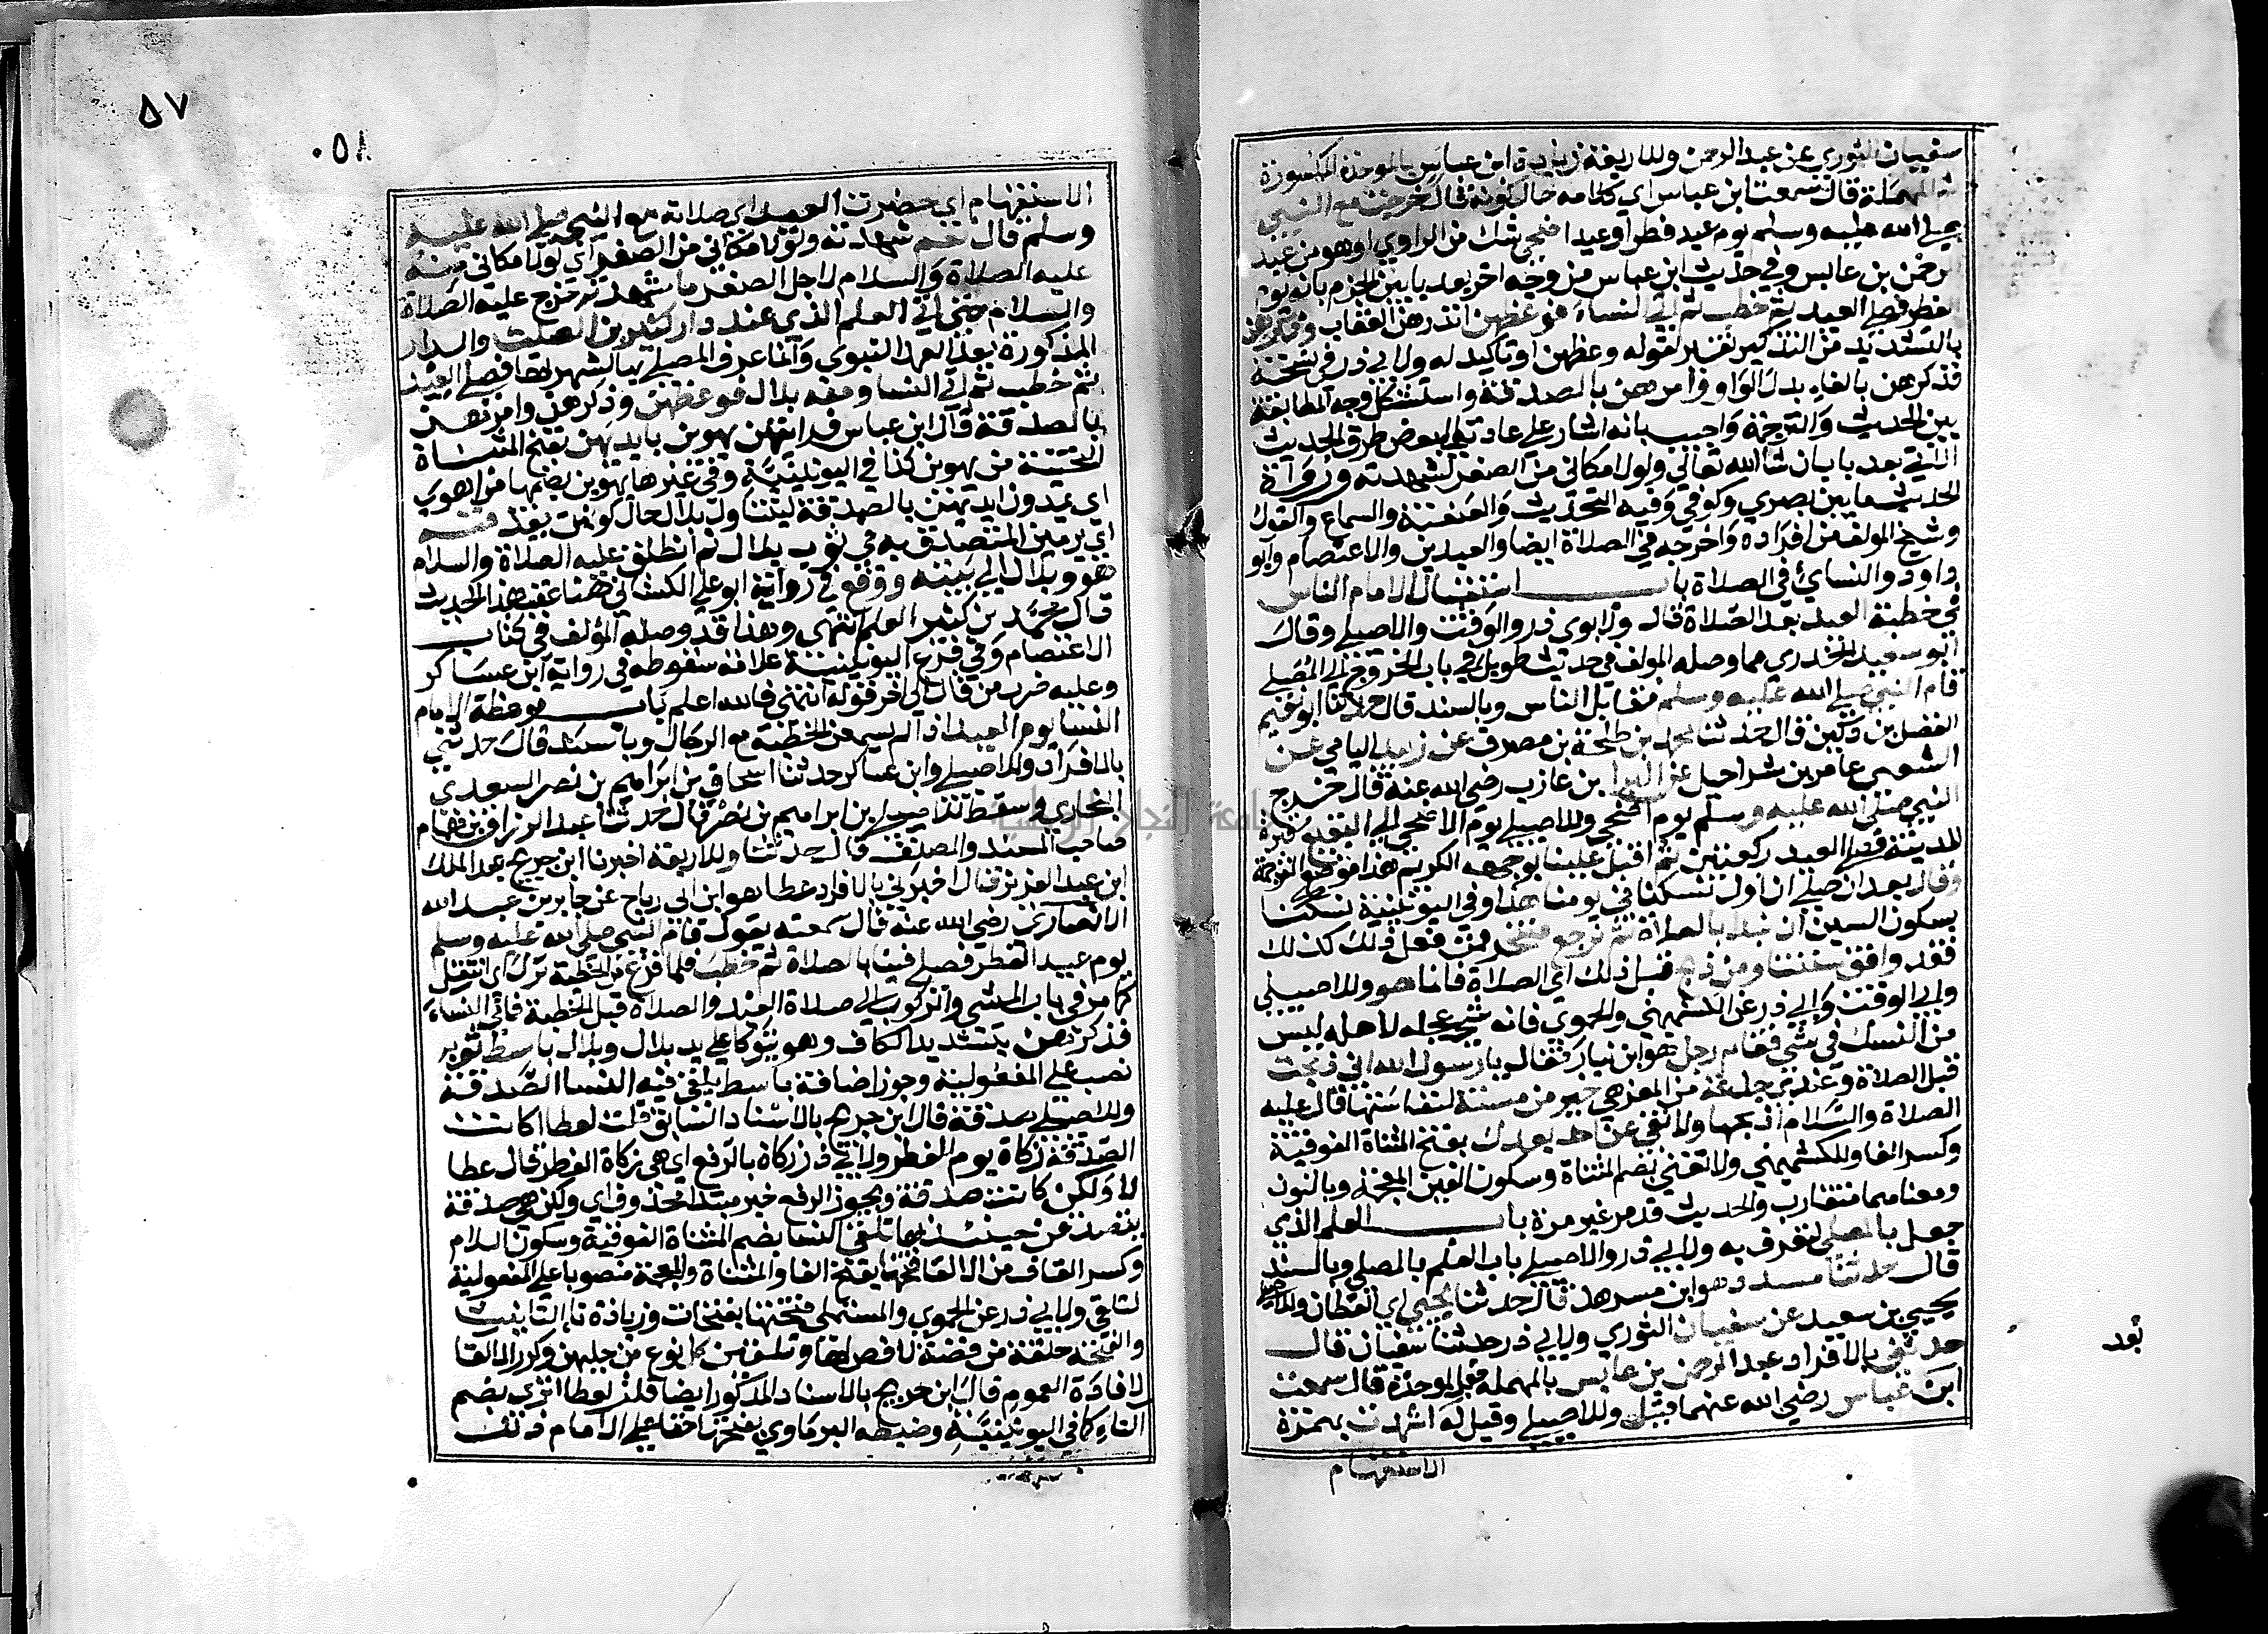 سفيان الثوري عن عبد الرحمن وللاربعة زيادة ابن عباس بالموحدة المكسورة
ثم المهملة قال سمعت ابن عباس اي كلامه حال كونه قال خرجت مع النبي
صلى الله عليه وسلم يوم عيد فطر او عيد اضحى شك من الراوي او هو من عبد
الرحمن بن عابس وفي حديث ابن عباس من وجه اخر بعد بابين الجزم بانه يوم
الفطر فصلى العيد ثم خطب ثم اتى النساء فوعظهن انذرهن العقاب وذكرهن
بالتشديد من التذكير تفسير لقوله وعظهن او تاكيد له ولابي ذر في نسخة
فذكرهن بالفاء بدل الواو وامرهن بالصدقة واستشكل وجه المطابقة
بين الحديث والترجمة واجيب بانه اشار على عادته الى بعض طرق الحديث
الاتي بعد باب ان شا الله تعالى ولولا مكاني من الصغر لشهدته ورواة
الحديث ما بين بصري وكوفي وفيه التحديث والعنعنة والسماع والقول
وشيخ المولف من افراده واخرجه في الصلاة ايضا والعيدين والاعتصام وابو
داود والنسائ في الصلاة باب استقبال الامام الناس
في خطبة العيد بعد الصلاة قال ولابوي ذر والوقت والاصيلي وقال
ابو سعيد الخدري مما وصله المولف في حديث طويل في باب الخروج الى المصلى
قام النبي صلى الله عليه وسلم مقابل الناس وبالسند قال حدثنا ابو نعيم
الفضل بن دكين قال حدثنا محمد بن طلحة بن مصرف عن زبيد اليامي عن
الشعبي عامر بن شراحيل عن البرا بن عازب رضي الله عنه قال خرج
النبي صلى الله عليه وسلم يوم اضحى وللاصيلي يوم الاضحى الى البقيع مقبرة
المدينة فصلى العيد ركعتين ثم اقبل علينا بوجهه الكريم هذا موضع الترجمة
وقال بعد ان صلى ان اول نسكنا في يومنا هذا وفي اليونينية نسكنا
بسكون السين ان نبدا بالصلاة ثم نرجع فننحر فمن فعل ذلك كذلك
فقد وافق سنتنا ومن ذبح قبل ذلك اي الصلاة فانما هو وللاصيلي
ولابي الوقت وابي ذر عن الكشميهني والحموي فانه شي عجله لاهله ليس
من النسك في شي فقام رجل هو ابن نيار فقال يا رسول الله اني ذبحت
قبل الصلاة وعندي جذعة من المعز هي خير من مسنة لنفاستها قال عليه
الصلاة والسلام اذبحها ولا تفي عن احد بعدك بفتح المثناة الفوقية
وكسر الفا وللكشميهني ولا تغني بضم المثناة وسكون الغين المعجمة وبالنون
ومعناهما متقارب والحديث قد مر غير مرة باب العلم الذي
جعل بالمصلى لتعرف به ولابي ذر والاصيلي باب العلم بالمصلى وبالسند
قال حدثنا مسدد وهو ابن مسرهد قال حدثنا يحيى اي القطان وللاصيلي
يحيى بن سعيد عن سفيان الثوري ولابي ذر حدثنا سفيان قال
حدثني بالافراد عبد الرحمن بن عابس بالمهملة قبل الموحدة قال سمعت
ابن عباس رضي الله عنهما قيل وللاصيلي وقيل له اشهدت بهمزة
الاستفهام
بعد
٥٧
٠٥٨
الاستفهام اي حضرت العيد اي صلاته مع النبي صلى الله عليه
وسلم قال نعم شهدته ولولا مكاني من الصغر اي لولا مكاني منه
عليه الصلاة والسلام لاجل الصغر ما شهدته خرج عليه الصلاة
والسلام حتى اتى العلم الذي عند دار كثير بن الصلت والدار
المذكورة بعد العهد النبوي وانما عرف المصلى بها لشهرتها فصلى العيد
ثم خطب ثم اتى النسا ومعه بلال فوعظهن وذكرهن وامرهن
بالصدقة قال ابن عباس فرايتهن يهوين بايديهن بفتح المثناة
التحتية من يهوين كذا في اليونينية وفي غيرها يهوين بضمها من اهوى
اي يمدون ايديهن بالصدقة ليتناول بلال حال كونهن يقذفنه
اي يرمين المتصدق به في ثوب بلال ثم انطلق عليه الصلاة والسلام
هو وبلال الى بيته ووقع في رواية ابو علي الكشاني هنا عقب هذا الحديث
قال محمد بن كثير العلم انتهى وهذا قد وصله المولف في كتاب
الاعتصام وفي فرع اليونينية علامة سقوطه في رواية ابن عساكر
وعليه ضرب من قال الى اخر قوله انتهى فالله اعلم باب موعظة الامام
النسا يوم العيد اذا لم يسمعن الخطبة مع الرجال وبالسند قال حدثني
بالافراد وللاصيلي وابن عساكر حدثنا اسحاق بن ابراهيم بن نصر السعدي
البخاري وسقط للاصيلي ابن ابراهيم بن نصر قال حدثنا عبد الرزاق بن همام
صاحب المسند والمصنف قال حدثنا وللاربعة اخبرنا ابن جريج عبد الملك
ابن عبد العزيز قال اخبرني بالافراد عطا هو ابن ابي رباح عن جابر بن عبد الله
الانصاري رضي الله عنه قال سمعته يقول قام النبي صلى الله عليه وسلم
يوم عيد الفطر فصلى فبدا بالصلاة ثم خطب فلما فرغ من الخطبة نزل اي انتقل
كما مر في باب المشي والركوب الى صلاة العيد والصلاة قبل الخطبة فاتى النساء
فذكرهن بتشديد الكاف وهو يتوكا على يد بلال وبلال باسط ثوبه
نصب على المفعولية وجوز اضافة باسط يلقي فيه النسا الصدقة
وللاصيلي صدقة قال ابن جريج بالاسناد السابق قلت لعطا اكانت
الصدقة زكاة يوم الفطر ولابي ذر زكاة بالرفع اي هي زكاة الفطر قال عطا
لا ولكن كانت صدقة ويجوز الرفع خبر مبتدا محذوف اي ولكن هي صدقة
يتصدقن حينئذ بها تلقي النسا بضم المثناة الفوقية وسكون اللام
وكسر القاف من الالقا فتخها بفتح الفا والمثناة والمعجمة منصوبا على المفعولية
لتلقي ولابي ذر عن الحموي والمستملي فتختها بفتحات وزيادة تا التانيث
والفتخة حلقة من فضة لا فص لها ويلقين كل نوع من حليهن وكرر الالقا
لافادة العموم قال ابن جريج بالاسناد المذكور ايضا قلت لعطا اترى بضم
التاء كما في اليونينية وضبطه البرماوي بفتحها حقا على الامام ذلك